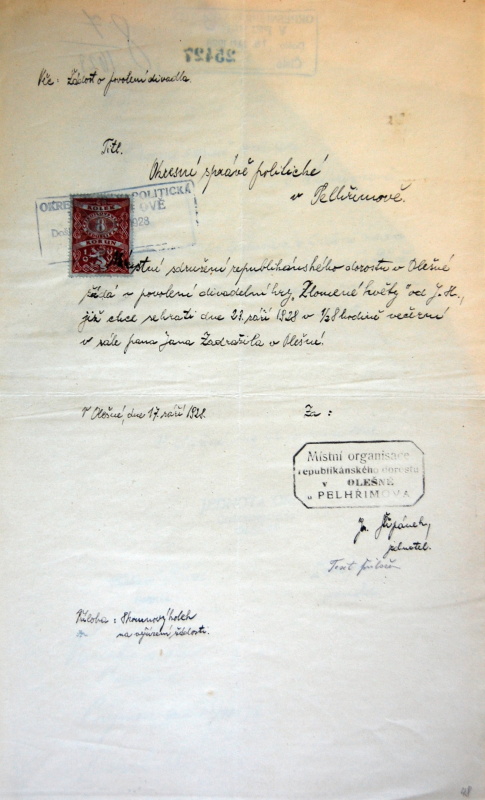 25427
Věc: Žádost o povolení divadla.
Titl.
Okresní správě politické
v Pelhřimově.
OKRES POLITICKÁ
OVĚ
1928
KOLEK
8
KORUN
Místní sdružení republikánského dorostu v Olešné
žádá o povolení divadelní hry „Zlomené květy" od J. H.,
již chce sehráti dne 27. září 1928 v ½8 hodině večerní
v sále pana Jana Zadražila v Olešné.
V Olešné, dne 17. září 1928.
Za:
Místní organisace
republikánského dorostu
v OLEŠNÉ
u PELHŘIMOVA
Jr. Štěpánek,
jednatel.
Text
Příloha: 8korunový kolek
na vyřízení žádosti.
48